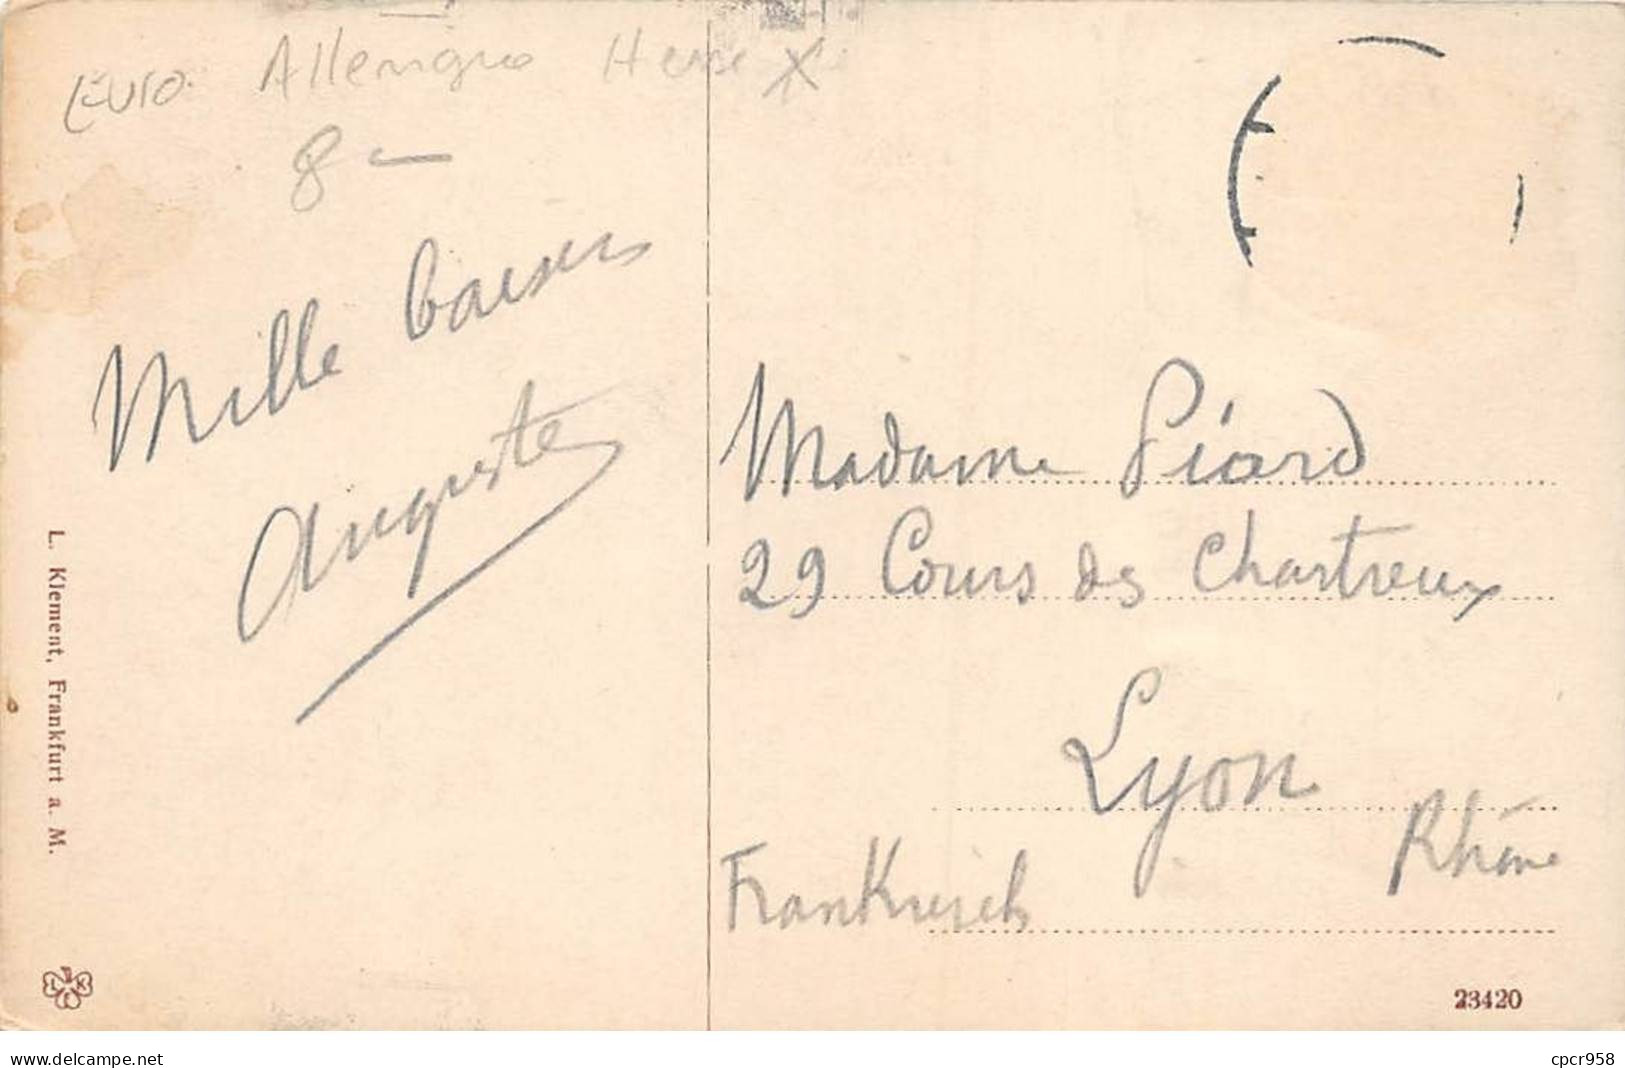 Euro. Allemagne Hesse X
8 —
Mille baisers
Auguste
L. Klement, Frankfurt a. M.
L K F
Madame Piard
29 Cours des Chartreux
Lyon
Rhône
Frankreich
23420
www.delcampe.net
cpcr958